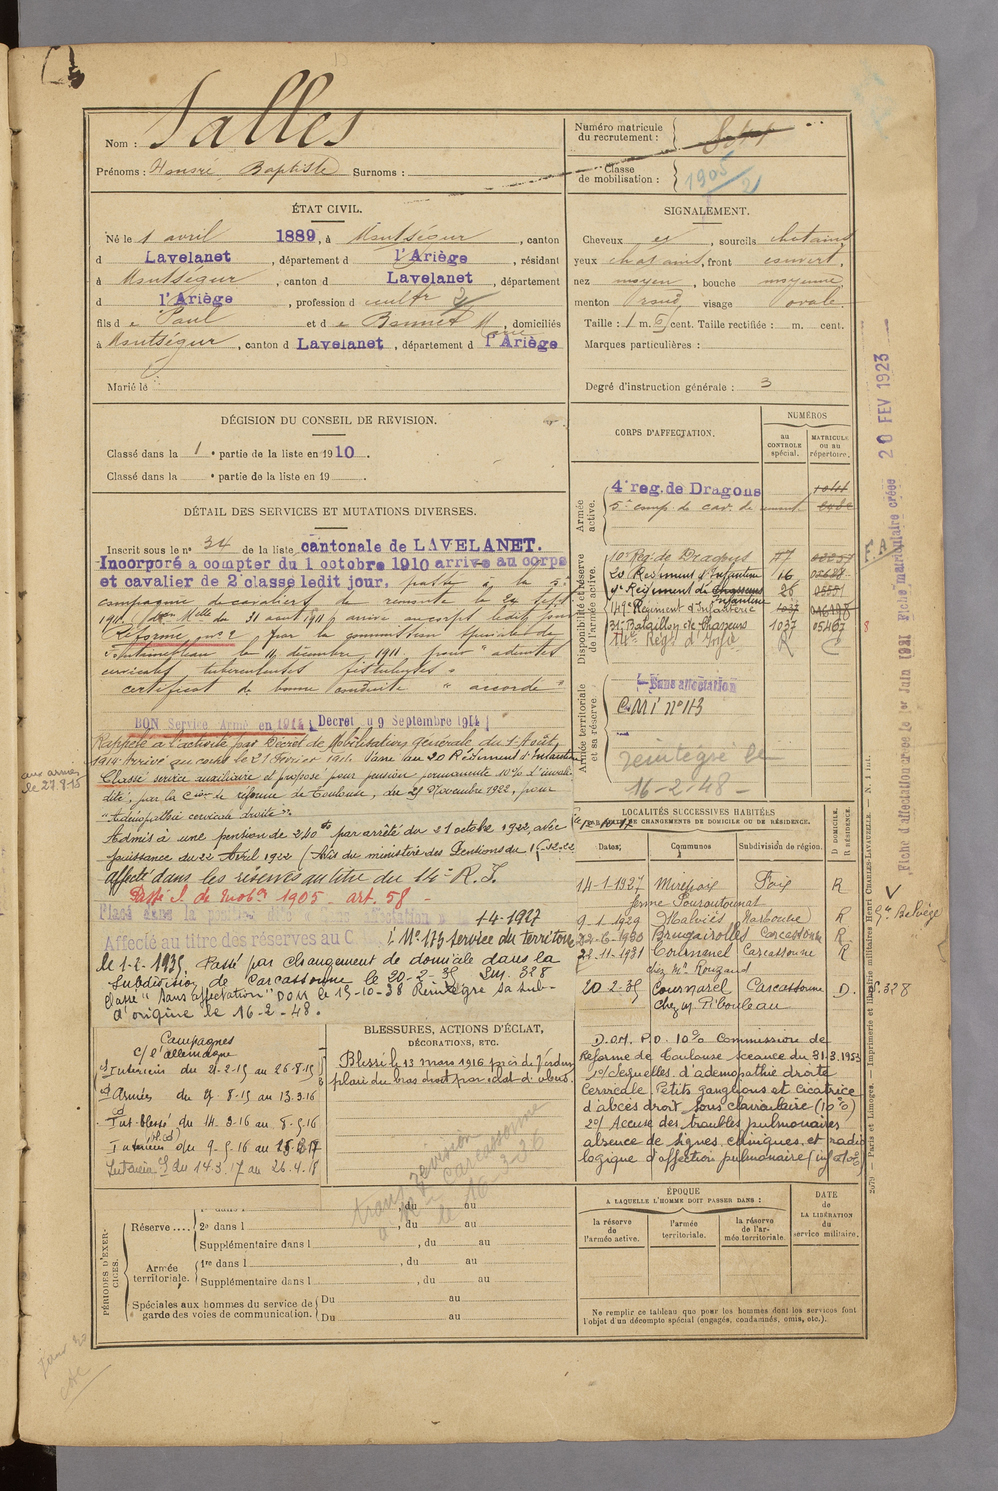 Nom : Salles
Prénoms : Honoré Baptiste Surnoms :
Numéro matricule
du recrutement :
Classe
de mobilisation :
1905/21
ÉTAT CIVIL.
Né le 1 avril 1889, à Montségur, canton
d Lavelanet, département d l'Ariège, résidant
à Montségur, canton d Lavelanet, département
d l'Ariège, profession d cultr
fils de Paul et de Bonnet Marie, domiciliés
à Montségur, canton d Lavelanet, département d l'Ariège
Marié le
SIGNALEMENT.
Cheveux et, sourcils chatains
yeux chatains, front couvert,
nez moyen, bouche moyenne
menton rond visage ovale.
Taille : 1 m. 6 cent. Taille rectifiée : m. cent.
Marques particulières :
Degré d'instruction générale : 3
DÉCISION DU CONSEIL DE RÉVISION.
Classé dans la 1e partie de la liste en 1910.
Classé dans la e partie de la liste en 19 .
DÉTAIL DES SERVICES ET MUTATIONS DIVERSES.
Inscrit sous le n° 34 de la liste cantonale de LAVELANET.
Incorporé a compter du 1 octobre 1910 arrive au corps
et cavalier de 2e classe ledit jour, passé à la 5e
compagnie de cavaliers de remonte le 24 Sept
1911, (don Melle du 31 aout 1911) arrivé au corps ledit jour
Réformé n° 2 par la commission spéciale de
Fontainebleau le 14 décembre 1911 pour "adenites
cervicales tuberculeuses fistuleuses".
certificat de bonne conduite "accordé"
BON Service Armé en 1914 (Decret du 9 Septembre 1914)
Rappelé à l'activité par Décret de Mobilisations générale du 1er Août
1914. Arrivé au corps le 21 Février 1915. Passé au 20 Régiment d'Infanterie
aux armées
le 27.8.15
Classé service auxiliaire et proposé pour pension permanente 10% d'invali-
dité, par la Cion de réforme de Toulouse, du 25 Novembre 1922, pour
"Adénopathie cervicale droite".
Admis à une pension de 240 frs par arrêté du 21 octobre 1922, avec
jouissance du 22 Avril 1922 (Avis du ministère des Pensions du
affecté dans les réserves au titre du 14e R.I.
Passé Cl. de mobon 1905 - art. 58 -
Placé dans la position dite "sans affectation" le 1-4-1927
Affecté au titre des réserves au C. M. I N° 173 service du territoire
le 1-2-1935. Passé par changement de domicile dans la
subdivision de Carcassonne le 20-2-35 Sup. 328
Classé "Sans affectation" DOM le 15-10-38 Réintégré sa sub-
d'origine le 16-2-48.
CORPS D'AFFECTATION.
NUMÉROS
au
CONTROLE
spécial.
MATRICULE
ou au
répertoire.
Armée
active.
4e reg. de Dragons
5e comp. de cav. de remonte
Disponibilité et réserve
de l'armée active.
10e Reg. de Dragons 77
20e Régiment d'Infanterie 16
9e Régiment de Chasseurs 26
Infanterie
149e Régiment d'Infanterie 1037
31e Bataillon de Chasseurs 1037 05467
14e Régt d'Infie
Armée territoriale
et sa réserve.
Sans affectation
C.M I n° 173
réintégré le
16-2-48 -
LOCALITÉS SUCCESSIVES HABITÉES
PAR SUITE DE CHANGEMENTS DE DOMICILE OU DE RÉSIDENCE.
Dates; Communes Subdivision de région. D. DOMICILE. R. RÉSIDENCE.
14-1-1927 Mirepoix Foix R
ferme Pouroutounat
9-1-1929 Malviès Narbonne R
22-6-1930 Brugairolles Carcassonne R
22-11-1931 Cournanel Carcassonne R
chez Mr Rougand
20-2-35 Cournanel Carcassonne D.
chez Mr Pibouleau
Gd Belvèze
S. 328
Campagnes
C/ l'allemagne
Intérieur du 21-2-15 au 26-8-15
Armées du 27-8-15 au 13-3-16
Int-blessé du 14-3-16 au 8-5-16
Intérieur du 9-5-16 au
Intérieur S du 14-3-17 au 26-4-18
BLESSURES, ACTIONS D'ÉCLAT,
DÉCORATIONS, ETC.
Blessé le 13 mars 1916 près de Verdun
plaie du bras droit par éclat d'obus.
transf révision
à Carcassonne
le 16-3-36
D.O.M. P.O. 10% Commission de
Réforme de Toulouse séance du 31-3-1953
1°/ Sequelles d'adenopathie droite
Cervicale Petits ganglions et cicatrice
d'abcès droit sous claviculaire (10%)
2°/ Accuse des troubles pulmonaires
absence de signes cliniques et radio
logique d'affection pulmonaire (inf à 10%)
PÉRIODES D'EXERCICES.
Réserve ....
1re dans l , du au
2e dans l , du au
Supplémentaire dans l , du au
Armée
territoriale.
1re dans l , du au
Supplémentaire dans l , du au
Spéciales aux hommes du service de
garde des voies de communication.
Du au
Du au
ÉPOQUE
A LAQUELLE L'HOMME DOIT PASSER DANS :
la réserve
de
l'armée active.
l'armée
territoriale.
la réserve
de l'ar-
mée territoriale.
DATE
de
LA LIBÉRATION
du
service militaire.
Ne remplir ce tableau que pour les hommes dont les services font
l'objet d'un décompte spécial (engagés, condamnés, omis, etc.).
Fiche d'affectation créée le 1er Juin 1921 Fiche matriculaire créée 20 FEV 1923
2079 — Paris et Limoges. — Imprimerie et librairie militaires Henri CHARLES-LAVAUZELLE. — N. 1 int.